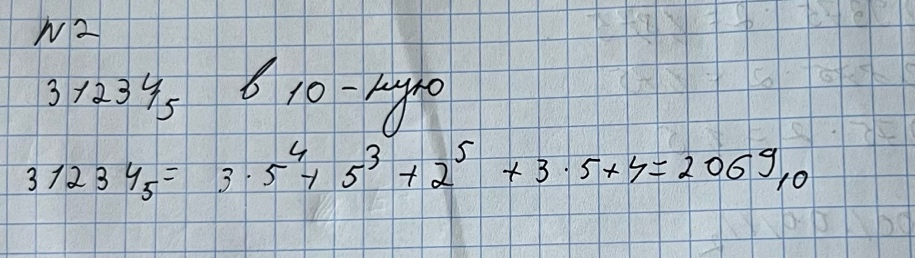 N2
31234₅ в 10-ную
31234₅ = 3·5⁴ + 5³ + 2⁵ + 3·5+4=2069₁₀